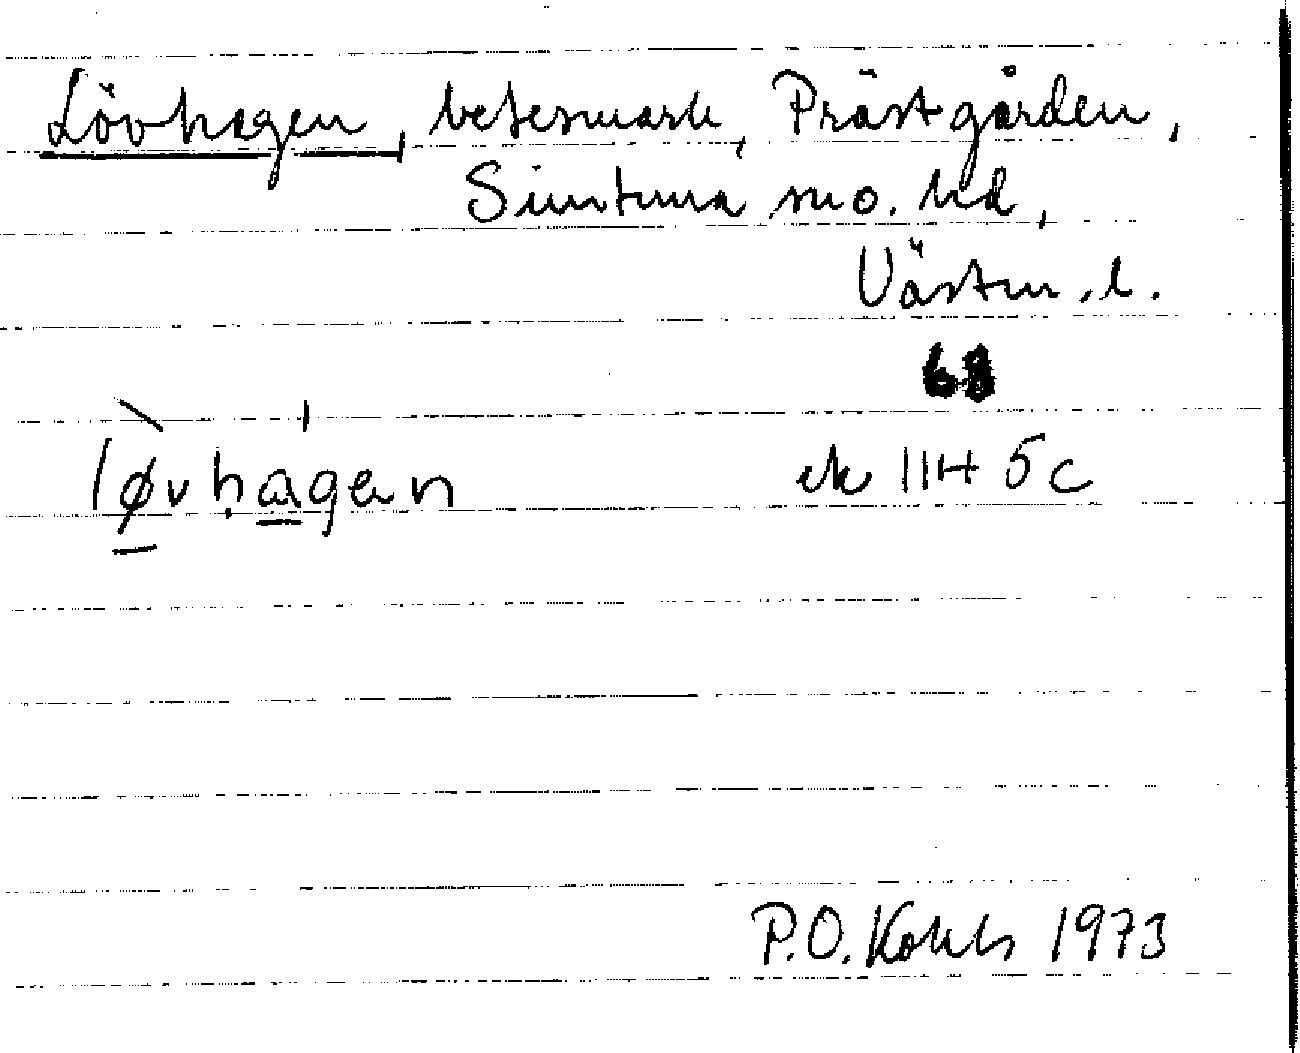 Lövhagen, betesmark, Prästgården,
Simtuna sno. hd,
Västm. l.
lø̱vha̱gen ek 11H 5c
P.O. Kohls 1973